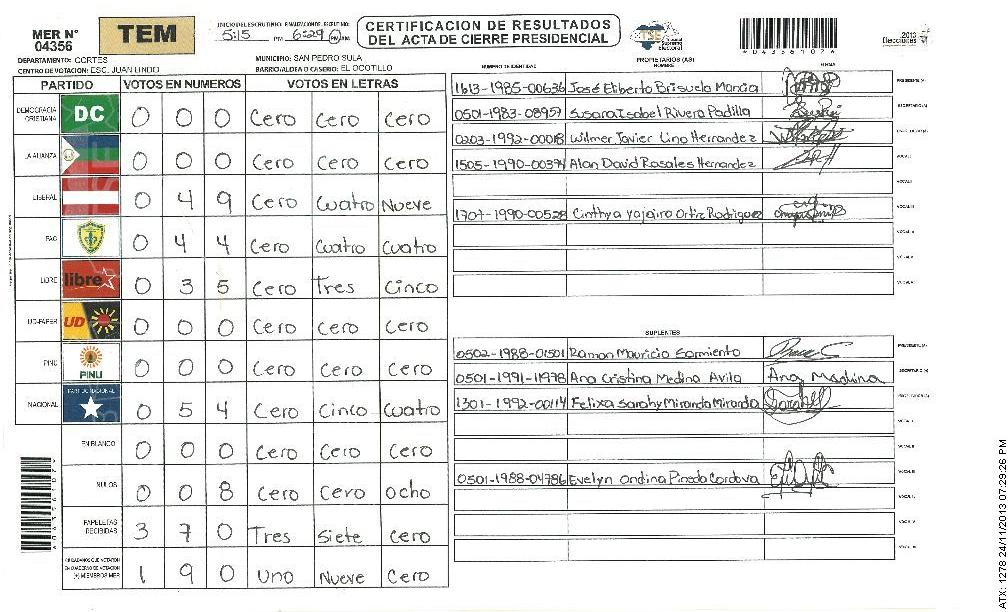 MER N° 04356
TEM
INICIO DEL ESCRUTINIO: 5:15 PM FINALIZACION DEL ESCRUTINIO: 6:29 PM AM
CERTIFICACION DE RESULTADOS
DEL ACTA DE CIERRE PRESIDENCIAL
TSE Tribunal Supremo Electoral
2013
Elecciones
DEPARTAMENTO: CORTES
MUNICIPIO: SAN PEDRO SULA
CENTRO DE VOTACION: ESC. JUAN LINDO
BARRIO/ALDEA O CASERIO: EL OCOTILLO
PARTIDO VOTOS EN NUMEROS VOTOS EN LETRAS
DEMOCRACIA CRISTIANA DC 0 0 0 Cero Cero Cero
LA ALIANZA 0 0 0 Cero Cero Cero
LIBERAL 0 4 9 Cero Cuatro Nueve
PAC 0 4 4 Cero Cuatro Cuatro
LIBRE libre 0 3 5 Cero Tres Cinco
UD-FAPER UD 0 0 0 Cero Cero Cero
PINU PINU 0 0 0 Cero Cero Cero
NACIONAL PARTIDO NACIONAL 0 5 4 Cero Cinco Cuatro
EN BLANCO 0 0 0 Cero Cero Cero
NULOS 0 0 8 Cero Cero Ocho
PAPELETAS RECIBIDAS 3 7 0 Tres Siete Cero
CIUDADANOS QUE VOTARON EN CUADERNO DE VOTACION (+) MIEMBROS MER 1 9 0 Uno Nueve Cero
PROPIETARIOS (AS)
NUMERO DE IDENTIDAD NOMBRE FIRMA
1613-1985-00636 José Eliberto Brisuela Mancia PRESIDENTE (A)
0501-1983-08957 Susara Isabel Rivera Padilla SECRETARIO (A)
0203-1992-00018 Wilmer Javier Lino Hernandez
1505-1990-00394 Alan David Rosales Hernandez VOCAL I
VOCAL II
1707-1990-00528 Cinthya Yajaira Ortiz Rodriguez VOCAL III
VOCAL IV
VOCAL V
SUPLENTES
0502-1988-01501 Ramon Mauricio Sarmiento PRESIDENTE (A)
0501-1991-11978 Ana Cristina Medina Avila Ana Medina SECRETARIO (A)
1301-1992-00114 Felixa Sarahy Miranda Miranda
VOCAL I
VOCAL II
0501-1988-04786 Evelyn Ondina Pineda Cordova VOCAL III
VOCAL IV
VOCAL V
ATX: 1278 24/11/2013 07:29:26 PM